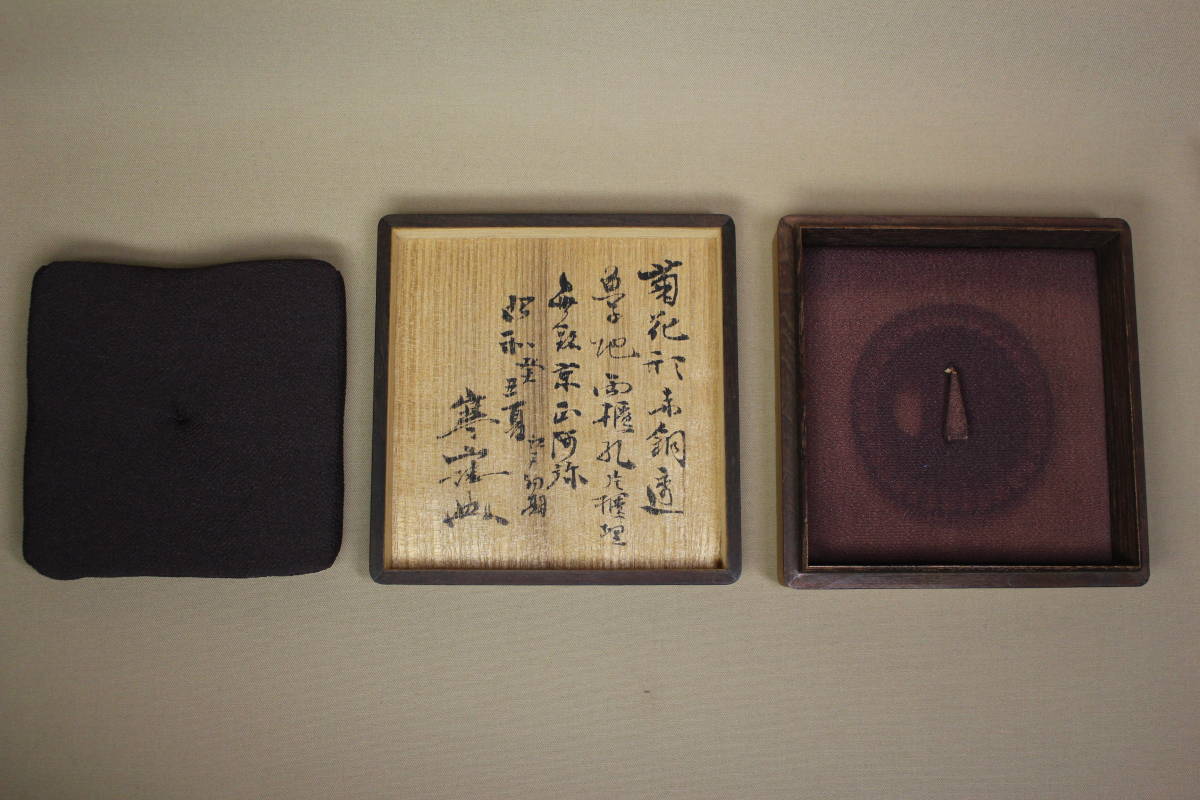 菊花形赤銅透
鋤地両櫃孔片櫃埋
無銘京正阿弥
江戸初期
昭和癸丑夏
寒山誌